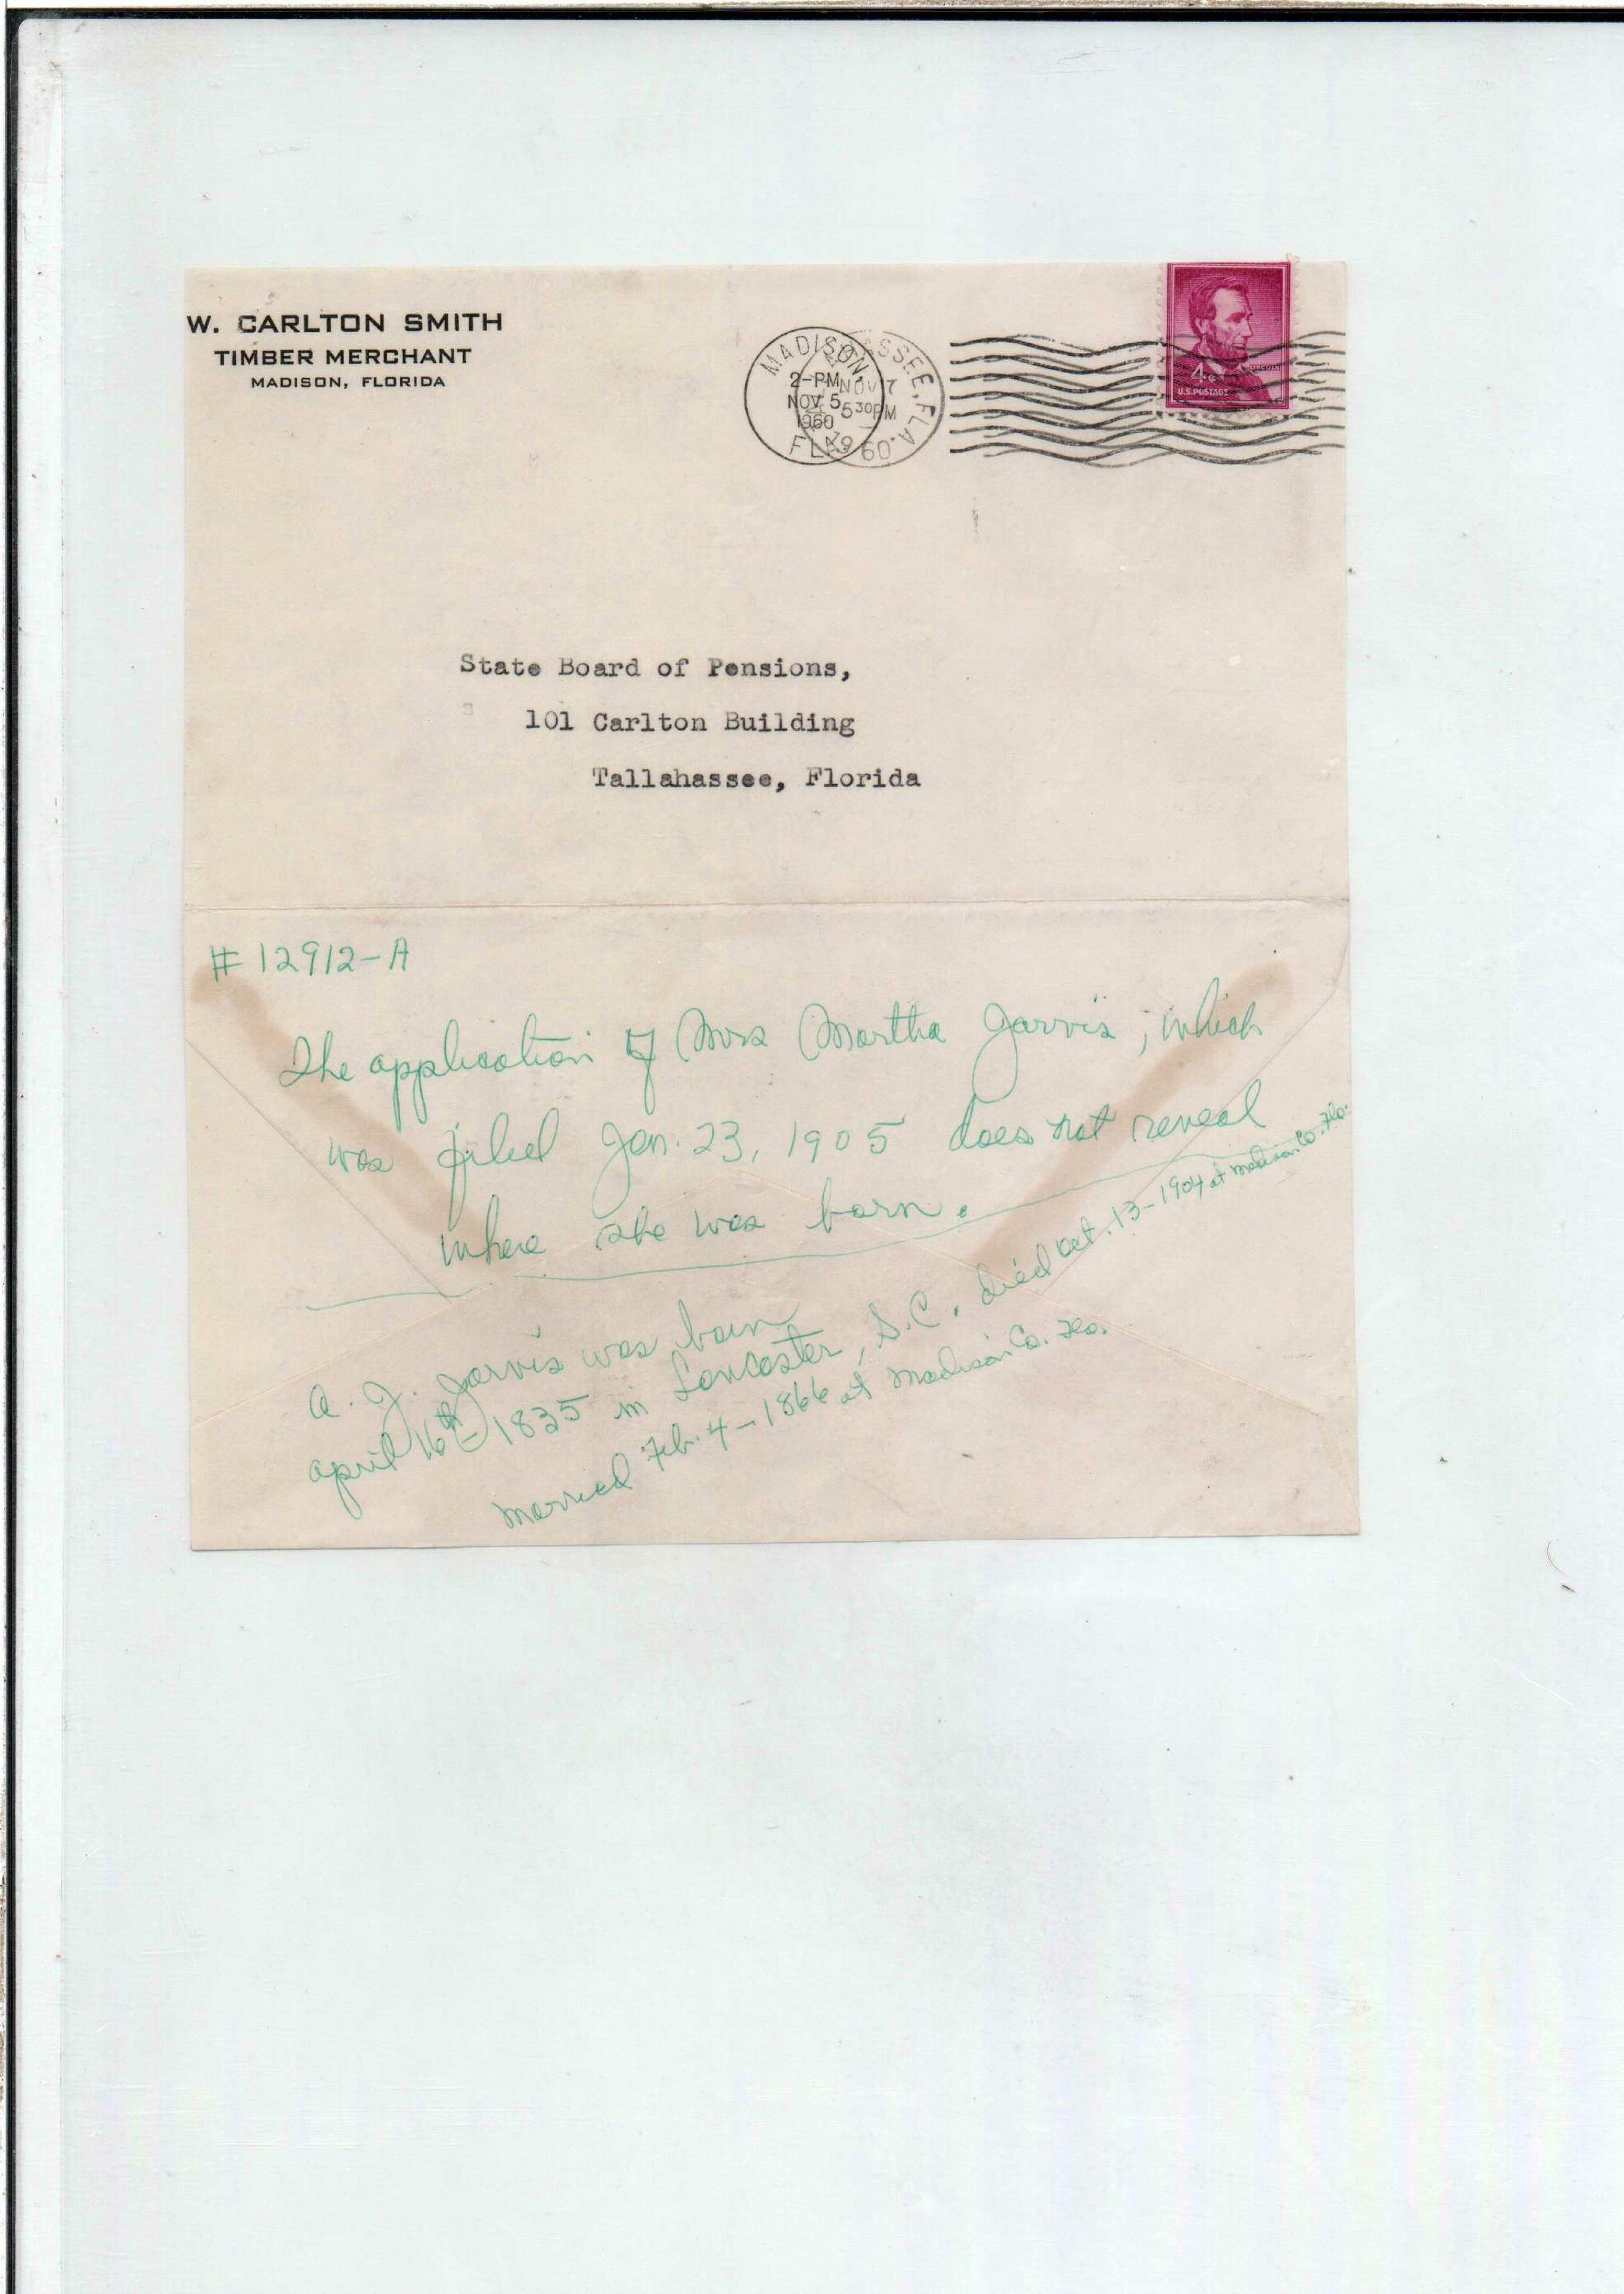 W. CARLTON SMITH
TIMBER MERCHANT
MADISON, FLORIDA
MADISON,
2-PM
NOV 5
1960
FLA.
ASSEE, FLA.
NOV 7
5 30PM
60
4¢
LINCOLN
U.S. POSTAGE
State Board of Pensions,
101 Carlton Building
Tallahassee, Florida
# 12912-A
The application of Mrs Martha Jarvis, which
was filed Jan. 23, 1905 does not reveal
where she was born.
A. J. Jarvis was born
April 16th - 1835 in Lancaster, S.C. died Oct. 13-1904 at Madison Co. Fla.
Married Feb. 4-1866 at Madison Co. Fla.